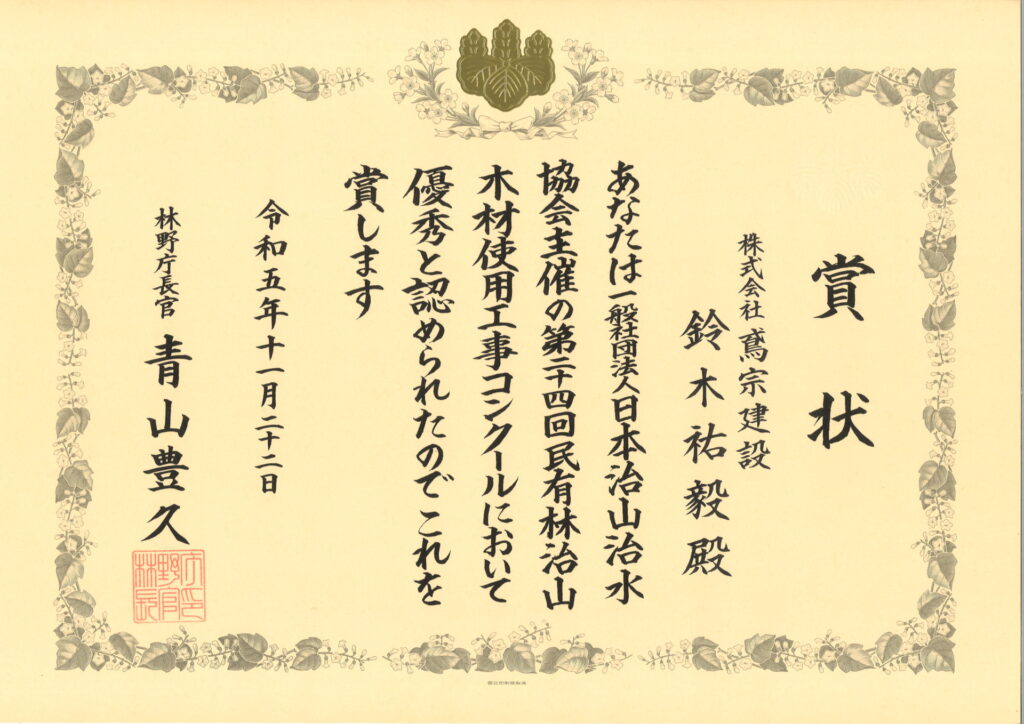 賞状
株式会社 鳶宗建設
鈴木祐毅殿
あなたは一般社団法人日本治山治水
協会主催の第二十四回民有林治山
木材使用工事コンクールにおいて
優秀と認められたのでこれを
賞します
令和五年十一月二十二日
林野庁長官 青山豊久
林野庁長官印